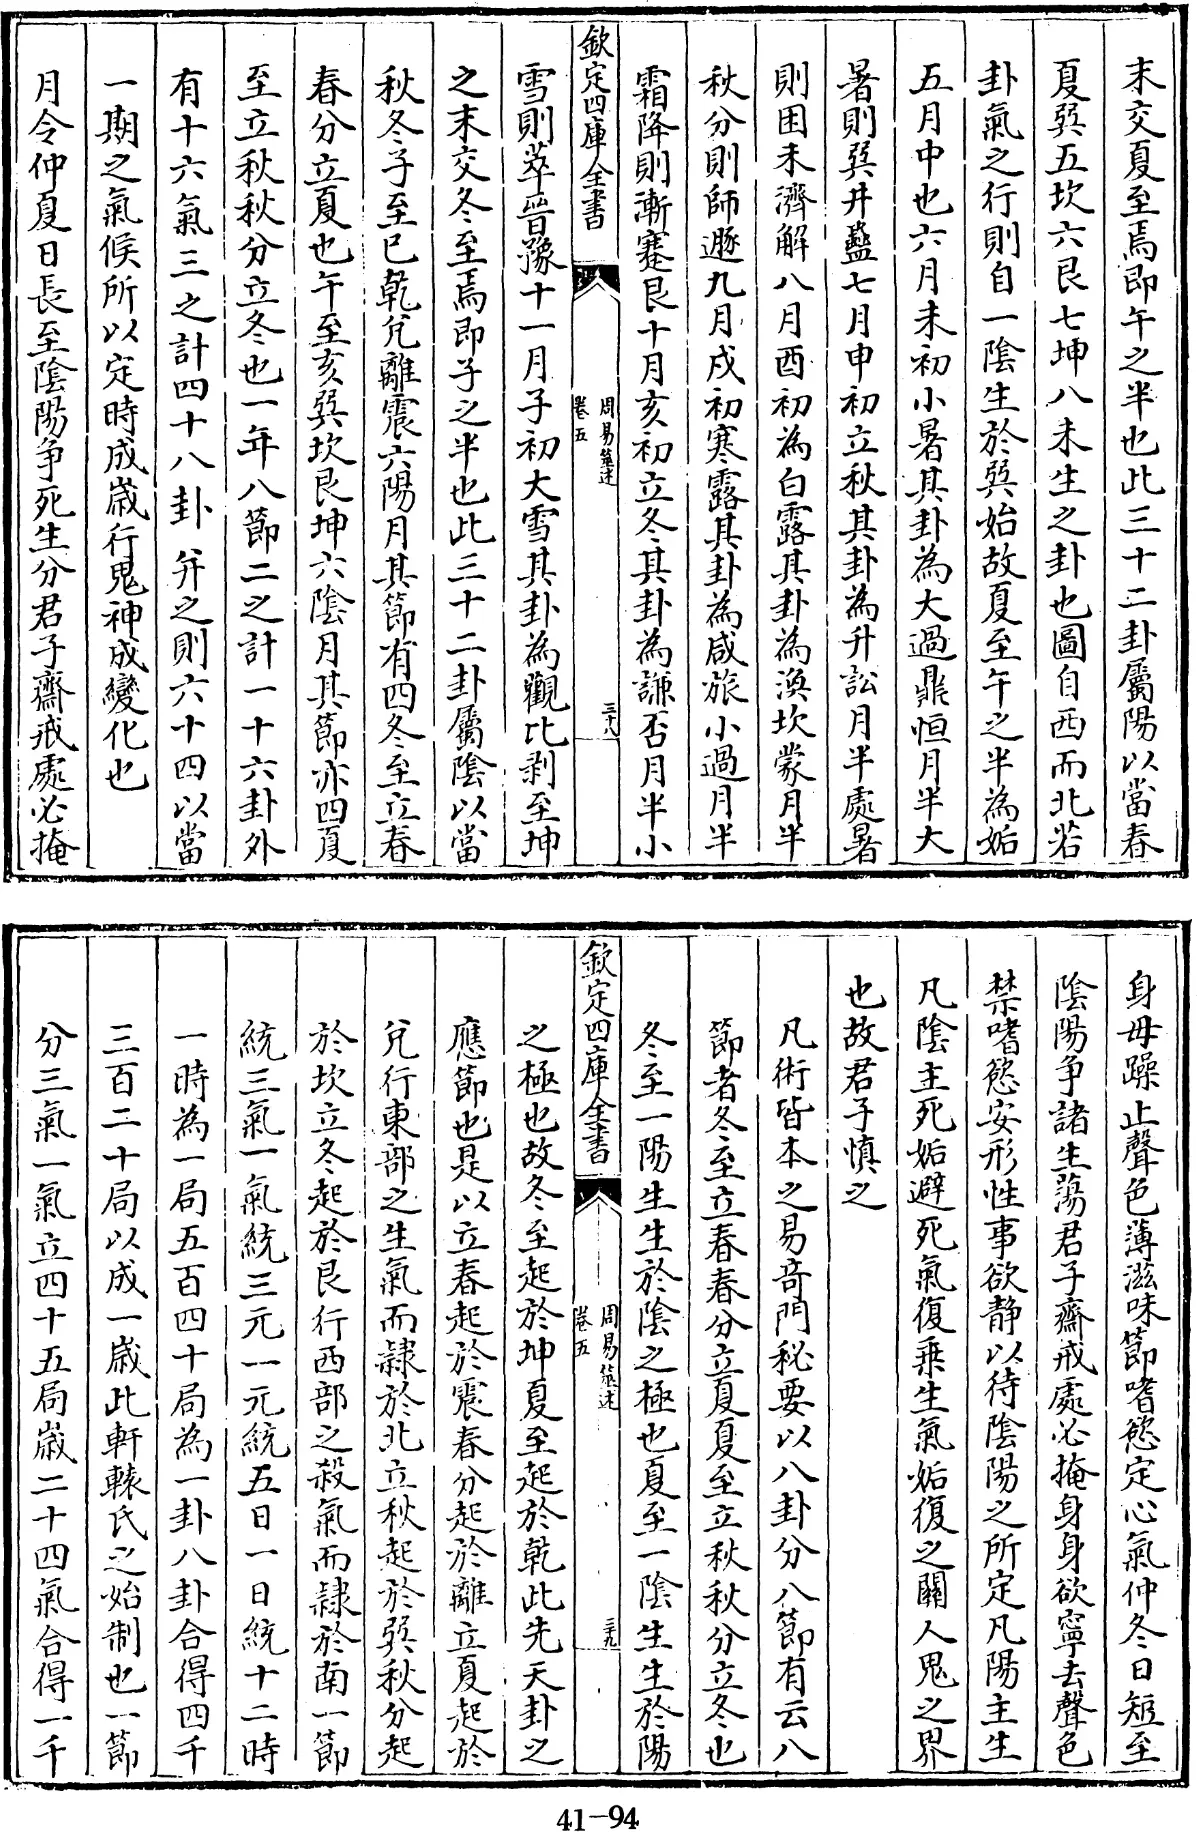 末交夏至焉即午之半也此三十二卦屬陽以當春
夏巽五坎六艮七坤八未生之卦也圖自西而北若
卦氣之行則自一陰生於巽始故夏至午之半為姤
五月中也六月未初小暑其卦為大過鼎恒月半大
暑則巽井蠱七月申初立秋其卦為升訟月半處暑
則困未濟解八月酉初為白露其卦為渙坎蒙月半
秋分則師遯九月戍初寒露其卦為咸旅小過月半
霜降則漸蹇艮十月亥初立冬其卦為謙否月半小
欽定四庫全書
周易筮述
卷五
三十八
雪則萃晉豫十一月子初大雪其卦為觀比剥至坤
之末交冬至焉即子之半也此三十二卦屬陰以當
秋冬子至巳乾兌離震六陽月其節有四冬至立春
春分立夏也午至亥巽坎艮坤六陰月其節亦四夏
至立秋秋分立冬也一年八節二之計一十六卦外
有十六氣三之計四十八卦并之則六十四以當
一期之氣候所以定時成歲行鬼神成變化也
月令仲夏日長至陰陽爭死生分君子齋戒處必掩
身毋躁止聲色薄滋味節嗜慾定心氣仲冬日短至
陰陽爭諸生蕩君子齋戒處必掩身身欲寧去聲色
禁嗜慾安形性事欲静以待陰陽之所定凡陽主生
凡陰主死姤避死氣復乗生氣姤復之關人鬼之界
也故君子慎之
凡術皆本之易竒門秘要以八卦分八節有云八
節者冬至立春春分立夏夏至立秋秋分立冬也
冬至一陽生生於陰之極也夏至一陰生生於陽
欽定四庫全書
周易筮述
卷五
三十九
之極也故冬至起於坤夏至起於乾此先天卦之
應節也是以立春起於震春分起於離立夏起於
兌行東部之生氣而隷於北立秋起於巽秋分起
於坎立冬起於艮行西部之殺氣而隷於南一節
統三氣一氣統三元一元統五日一日統十二時
一時為一局五百四十局為一卦八卦合得四千
三百二十局以成一歲此軒轅氏之始制也一節
分三氣一氣立四十五局歲二十四氣合得一千
41-94